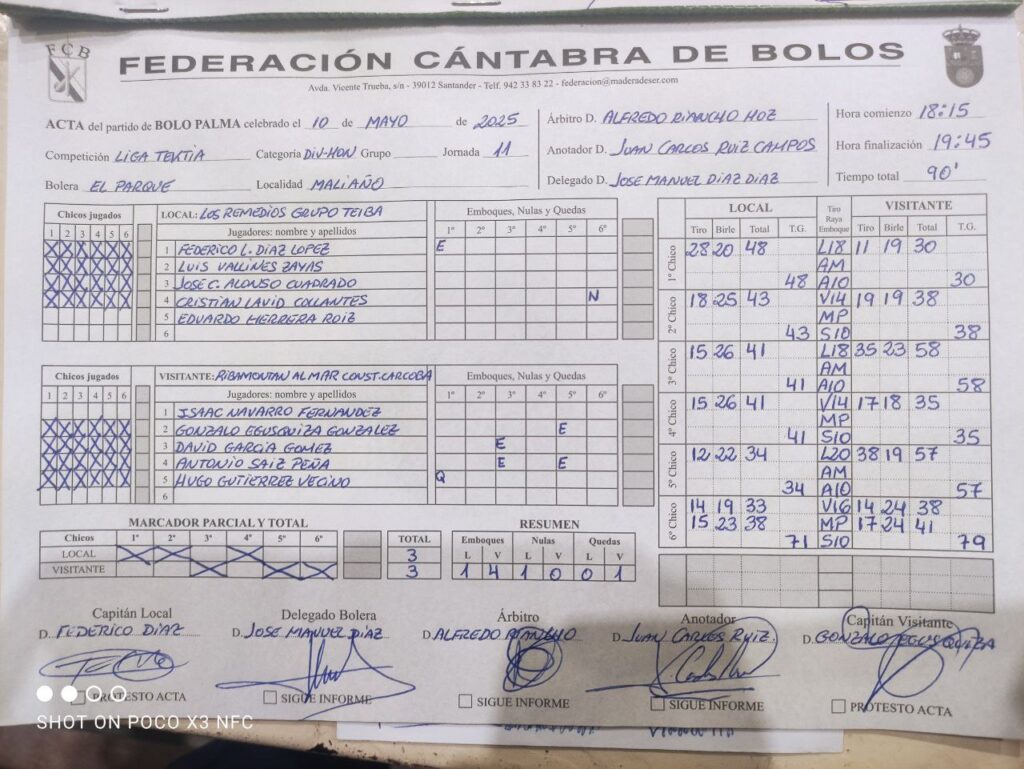 FCB
FEDERACIÓN CÁNTABRA DE BOLOS
Avda. Vicente Trueba, s/n - 39012 Santander - Telf. 942 33 83 22 - federacion@maderadeser.com
ACTA del partido de BOLO PALMA celebrado el 10 de MAYO de 2025
Competición LIGA TEXTIA Categoría DIV-HON Grupo Jornada 11
Bolera EL PARQUE Localidad MALIAÑO
Árbitro D. ALFREDO RIANCHO HOZ
Anotador D. JUAN CARLOS RUIZ CAMPOS
Delegado D. JOSE MANUEL DIAZ DIAZ
Hora comienzo 18:15
Hora finalización 19:45
Tiempo total 90'
Chicos jugados LOCAL: LOS REMEDIOS GRUPO TEIBA Emboques, Nulas y Quedas
1 2 3 4 5 6 Jugadores: nombre y apellidos 1º 2º 3º 4º 5º 6º
X X X X X X 1 FEDERICO L. DIAZ LOPEZ E
X X X X X X 2 LUIS VALLINES ZAYAS
X X X X X X 3 JOSE C. ALONSO CUADRADO
X X X X X X 4 CRISTIAN LAVID COLLANTES N
5 EDUARDO HERRERA ROIZ
6
Chicos jugados VISITANTE: RIBAMONTAN AL MAR CONST. CARCOBA Emboques, Nulas y Quedas
1 2 3 4 5 6 Jugadores: nombre y apellidos 1º 2º 3º 4º 5º 6º
1 ISAAC NAVARRO FERNANDEZ
X X X X X X 2 GONZALO EGUSQUIZA GONZALEZ E
X X X X X X 3 DAVID GARCIA GOMEZ E
X X X X X X 4 ANTONIO SAIZ PEÑA E E
X X X X X X 5 HUGO GUTIERREZ VECINO Q
6
MARCADOR PARCIAL Y TOTAL
Chicos 1º 2º 3º 4º 5º 6º TOTAL
LOCAL X X X 3
VISITANTE X X X 3
RESUMEN
Emboques Nulas Quedas
L V L V L V
1 4 1 0 0 1
LOCAL Tiro Raya Emboque VISITANTE
Tiro Birle Total T.G. Tiro Birle Total T.G.
1º Chico 28 20 48 L18 11 19 30
AM
48 A10 30
2º Chico 18 25 43 V14 19 19 38
MP
43 S10 38
3º Chico 15 26 41 L18 35 23 58
AM
41 A10 58
4º Chico 15 26 41 V14 17 18 35
MP
41 S10 35
5º Chico 12 22 34 L20 38 19 57
AM
34 A10 57
6º Chico 14 19 33 V16 14 24 38
15 23 38 MP 17 24 41
71 S10 79
Capitán Local Delegado Bolera Árbitro Anotador Capitán Visitante
D. FEDERICO DIAZ D. JOSE MANUEL DIAZ D. ALFREDO RIANCHO D. JUAN CARLOS RUIZ. D. GONZALO EGUSQUIZA
PROTESTO ACTA SIGUE INFORME SIGUE INFORME SIGUE INFORME PROTESTO ACTA
SHOT ON POCO X3 NFC